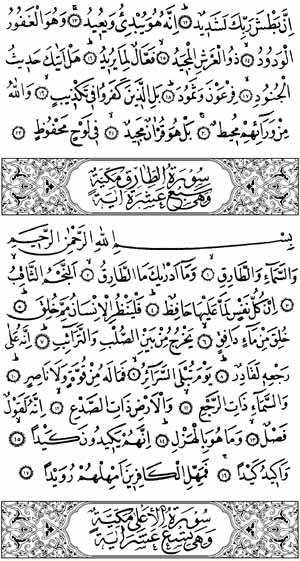 اِنَّ بَطْشَ رَبِّكَ لَشَدِيدٌ ١٢ اِنَّهُ هُوَ يُبْدِئُ وَيُعِيدُ ١٣ وَهُوَ الْغَفُورُ
الْوَدُودُ ١٤ ذُو الْعَرْشِ الْمَجِيدُ ١٥ فَعَّالٌ لِمَا يُرِيدُ ١٦ هَلْ اَتٰيكَ حَدِيثُ
الْجُنُودِ ١٧ فِرْعَوْنَ وَثَمُودَ ١٨ بَلِ الَّذِينَ كَفَرُوا فِي تَكْذِيبٍ ١٩ وَاللّٰهُ
مِنْ وَرَآئِهِمْ مُحِيطٌ ٢٠ بَلْ هُوَ قُرْاٰنٌ مَجِيدٌ ٢١ فِي لَوْحٍ مَحْفُوظٍ ٢٢
سُورَةُ الطَّارِقِ مَكِّيَّةٌ
وَهِيَ سَبْعَ عَشْرَةَ اٰيَةً
بِسْمِ اللّٰهِ الرَّحْمٰنِ الرَّحِيمِ
وَالسَّمَآءِ وَالطَّارِقِ ١ وَمَآ اَدْرٰيكَ مَا الطَّارِقُ ٢ اَلنَّجْمُ الثَّاقِبُ
٣ اِنْ كُلُّ نَفْسٍ لَمَّا عَلَيْهَا حَافِظٌ ٤ فَلْيَنْظُرِ الْاِنْسَانُ مِمَّ خُلِقَ ٥
خُلِقَ مِنْ مَآءٍ دَافِقٍ ٦ يَخْرُجُ مِنْ بَيْنِ الصُّلْبِ وَالتَّرَآئِبِ ٧ اِنَّهُ عَلٰى
رَجْعِهِ لَقَادِرٌ ٨ يَوْمَ تُبْلَى السَّرَآئِرُ ٩ فَمَا لَهُ مِنْ قُوَّةٍ وَلَا نَاصِرٍ ١٠
وَالسَّمَآءِ ذَاتِ الرَّجْعِ ١١ وَالْاَرْضِ ذَاتِ الصَّدْعِ ١٢ اِنَّهُ لَقَوْلٌ
فَصْلٌ ١٣ وَمَا هُوَ بِالْهَزْلِ ١٤ اِنَّهُمْ يَكِيدُونَ كَيْدًا ١٥
وَاَكِيدُ كَيْدًا ١٦ فَمَهِّلِ الْكَافِرِينَ اَمْهِلْهُمْ رُوَيْدًا ١٧
سُورَةُ الْاَعْلٰى مَكِّيَّةٌ
وَهِيَ تِسْعَ عَشْرَةَ اٰيَةً